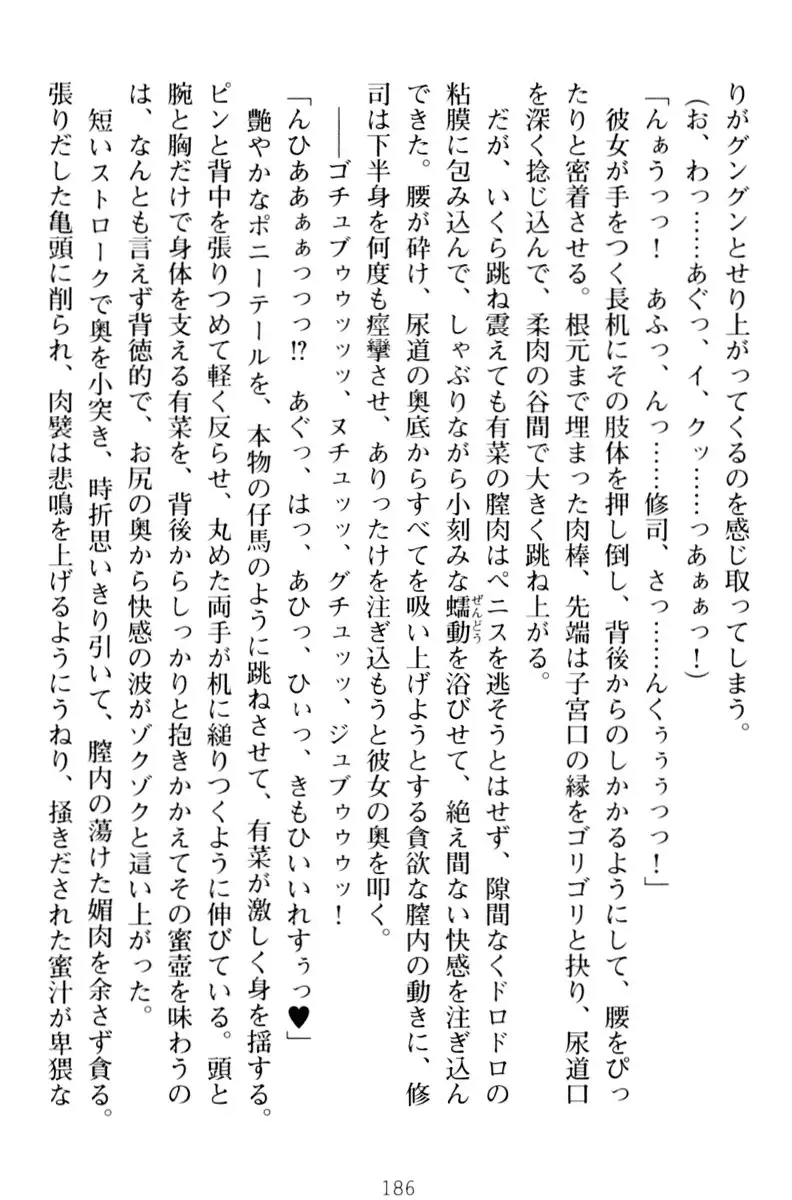 りがグングンとせり上がってくるのを感じ取ってしまう。
(お、わっ……あぐっ、イ、クッ……っあぁぁっ!)
「んぁうっっ! あふっ、んっ……修司、さっ……んくぅぅぅっっ!」
彼女が手をつく長机にその肢体を押し倒し、背後からのしかかるようにして、腰をぴっ
たりと密着させる。根元まで埋まった肉棒、先端は子宮口の縁をゴリゴリと抉り、尿道口
を深く捻じ込んで、柔肉の谷間で大きく跳ね上がる。
だが、いくら跳ね震えても有菜の膣肉はペニスを逃そうとはせず、隙間なくドロドロの
粘膜に包み込んで、しゃぶりながら小刻みな蠕動を浴びせて、絶え間ない快感を注ぎ込ん
ぜんどう
できた。腰が砕け、尿道の奥底からすべてを吸い上げようとする貪欲な膣内の動きに、修
司は下半身を何度も痙攣させ、ありったけを注ぎ込もうと彼女の奥を叩く。
――ゴチュブゥゥッッッ、ヌチュッッ、グチュッッ、ジュブゥゥゥッ!
「んひああぁぁっっっ!? あぐっ、はっ、あひっ、ひぃっ、きもひいいれすぅっ♥」
艶やかなポニーテールを、本物の仔馬のように跳ねさせて、有菜が激しく身を揺する。
ピンと背中を張りつめて軽く反らせ、丸めた両手が机に縋りつくように伸びている。頭と
腕と胸だけで身体を支える有菜を、背後からしっかりと抱きかかえてその蜜壺を味わうの
は、なんとも言えず背徳的で、お尻の奥から快感の波がゾクゾクと這い上がった。
短いストロークで奥を小突き、時折思いきり引いて、膣内の蕩けた媚肉を余さず貪る。
張りだした亀頭に削られ、肉襞は悲鳴を上げるようにうねり、掻きだされた蜜汁が卑猥な
186